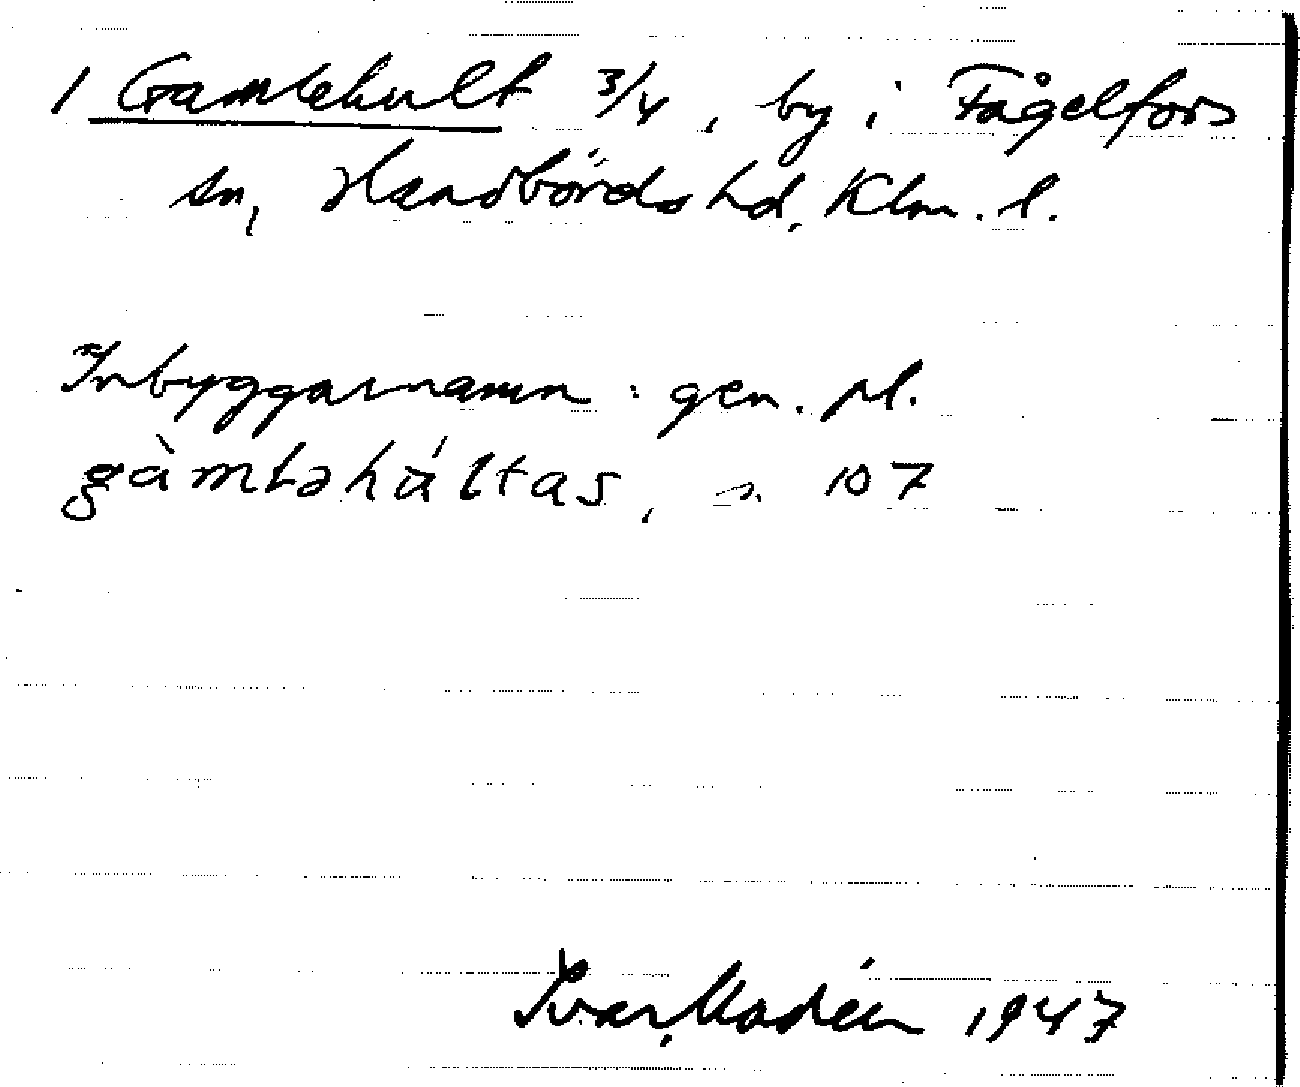 1 Gamlehult 3/4, by i Fågelfors
sn, Handbörds hd, Klm. l.
Inbyggarnamn: gen. pl.
gàmləháltas, s. 107
Ivar Modéer 1947